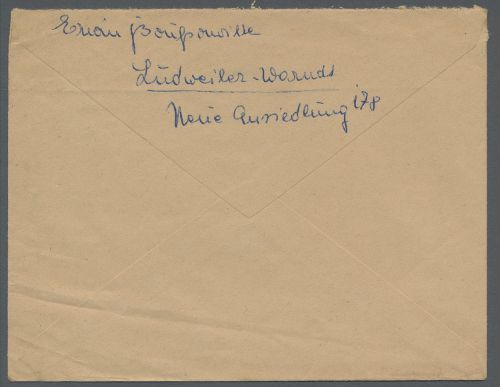 Erwin Bousonville
Ludweiler-Warndt
Neue Ansiedlung 178